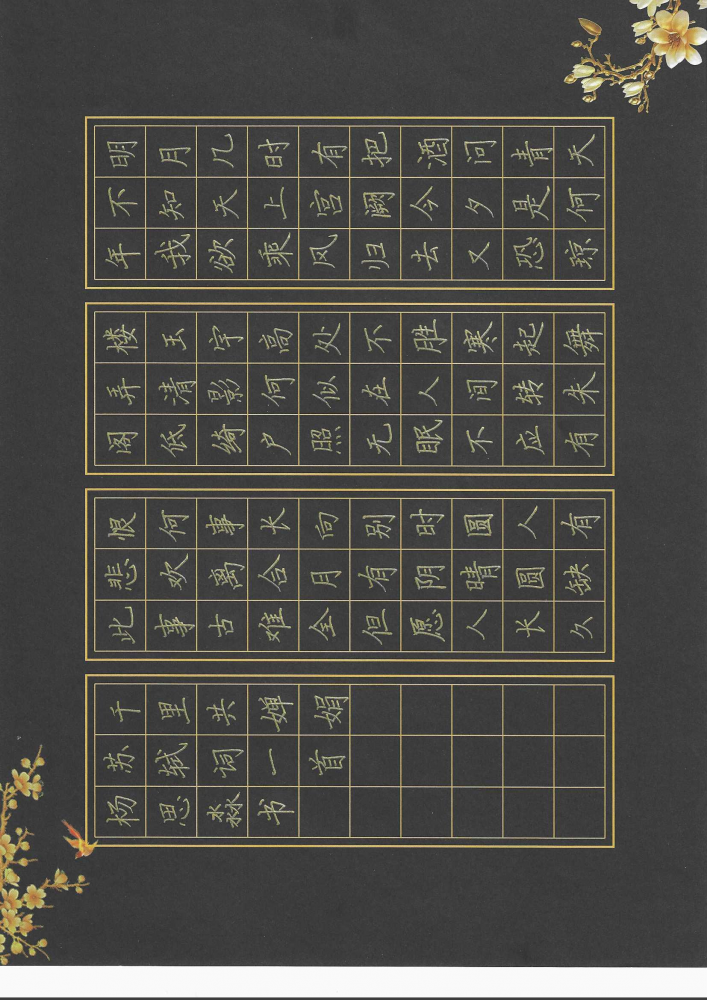 明月几时有把酒问青天
不知天上宫阙今夕是何
年我欲乘风归去又恐琼
楼玉宇高处不胜寒起舞
弄清影何似在人间转朱
阁低绮户照无眠不应有
恨何事长向别时圆人有
悲欢离合月有阴晴圆缺
此事古难全但愿人长久
千里共婵娟
苏轼词一首
杨思淼书